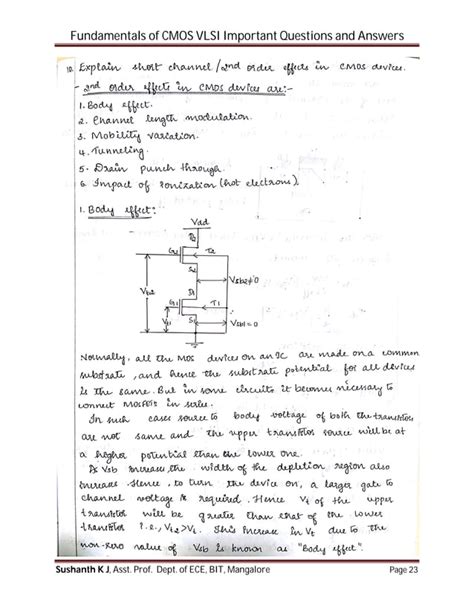 Fundamentals of CMOS VLSI Important Questions and Answers
10. Explain short channel /2nd order effects in CMOS devices.
- 2nd order effects in CMOS devices are:-
1. Body effect.
2. Channel length modulation.
3. Mobility variation.
4. Tunneling.
5. Drain punch through.
6. Impact of Ionization (hot electrons).
1. Body effect:
Vdd
G2
T2
S2
Vsb2≠0
Vt2
G1
T1
Vt1
S1
Vsb1=0
Normally, all the MOS devices on an IC are made on a common
substrate, and hence the substrate potential for all devices
is the same. But in some circuits it becomes necessary to
connect MOSFETs in series.
In such cases source to body voltage of both the transistors
are not same and the upper transistor source will be at
a higher potential than the lower one.
As Vsb increase, the width of the depletion region also
increases. Hence, to turn the device on, a larger gate to
channel voltage is required. Hence Vt of the upper
transistor will be greater than that of the lower
transistor i.e., Vt2>Vt1. This increase in Vt due to the
non-zero value of Vsb is known as "Body effect".
Sushanth K J, Asst. Prof. Dept. of ECE, BIT, Mangalore
Page 23